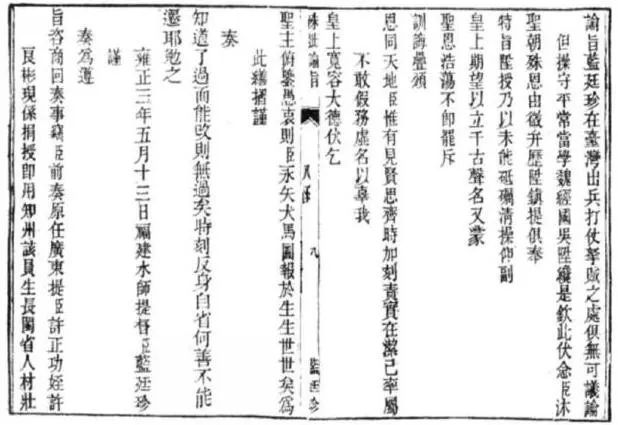 諭旨藍廷珍在臺灣出兵打仗拏賊之處俱無可議論
但操守平常當學魏經國吳陞纔是欽此伏念臣沐
聖朝殊恩由微弁歷陞鎮提俱奉
特旨陞授乃以未能砥礪清操仰副
皇上期望以立千古聲名又蒙
聖恩浩蕩不即罷斥
訓誨疊頒
恩同天地臣惟有見賢思齊時加刻責實在潔己率屬
不敢假務虛名以辜我
皇上寬容大德伏乞
硃批諭旨 九 藍廷珍
聖主俯鑒愚衷則臣永矢犬馬圖報於生生世世矣為
此繕摺謹
奏
知道了過而能改則無過矣時刻反身自省何善不能
遷耶勉之
雍正三年五月十三日福建水師提督臣藍廷珍
謹
奏為遵
旨咨商回奏事竊臣前奏原任廣東提臣許正功姪許
良彬現係捐授即用知州該員生長閩省人材壯